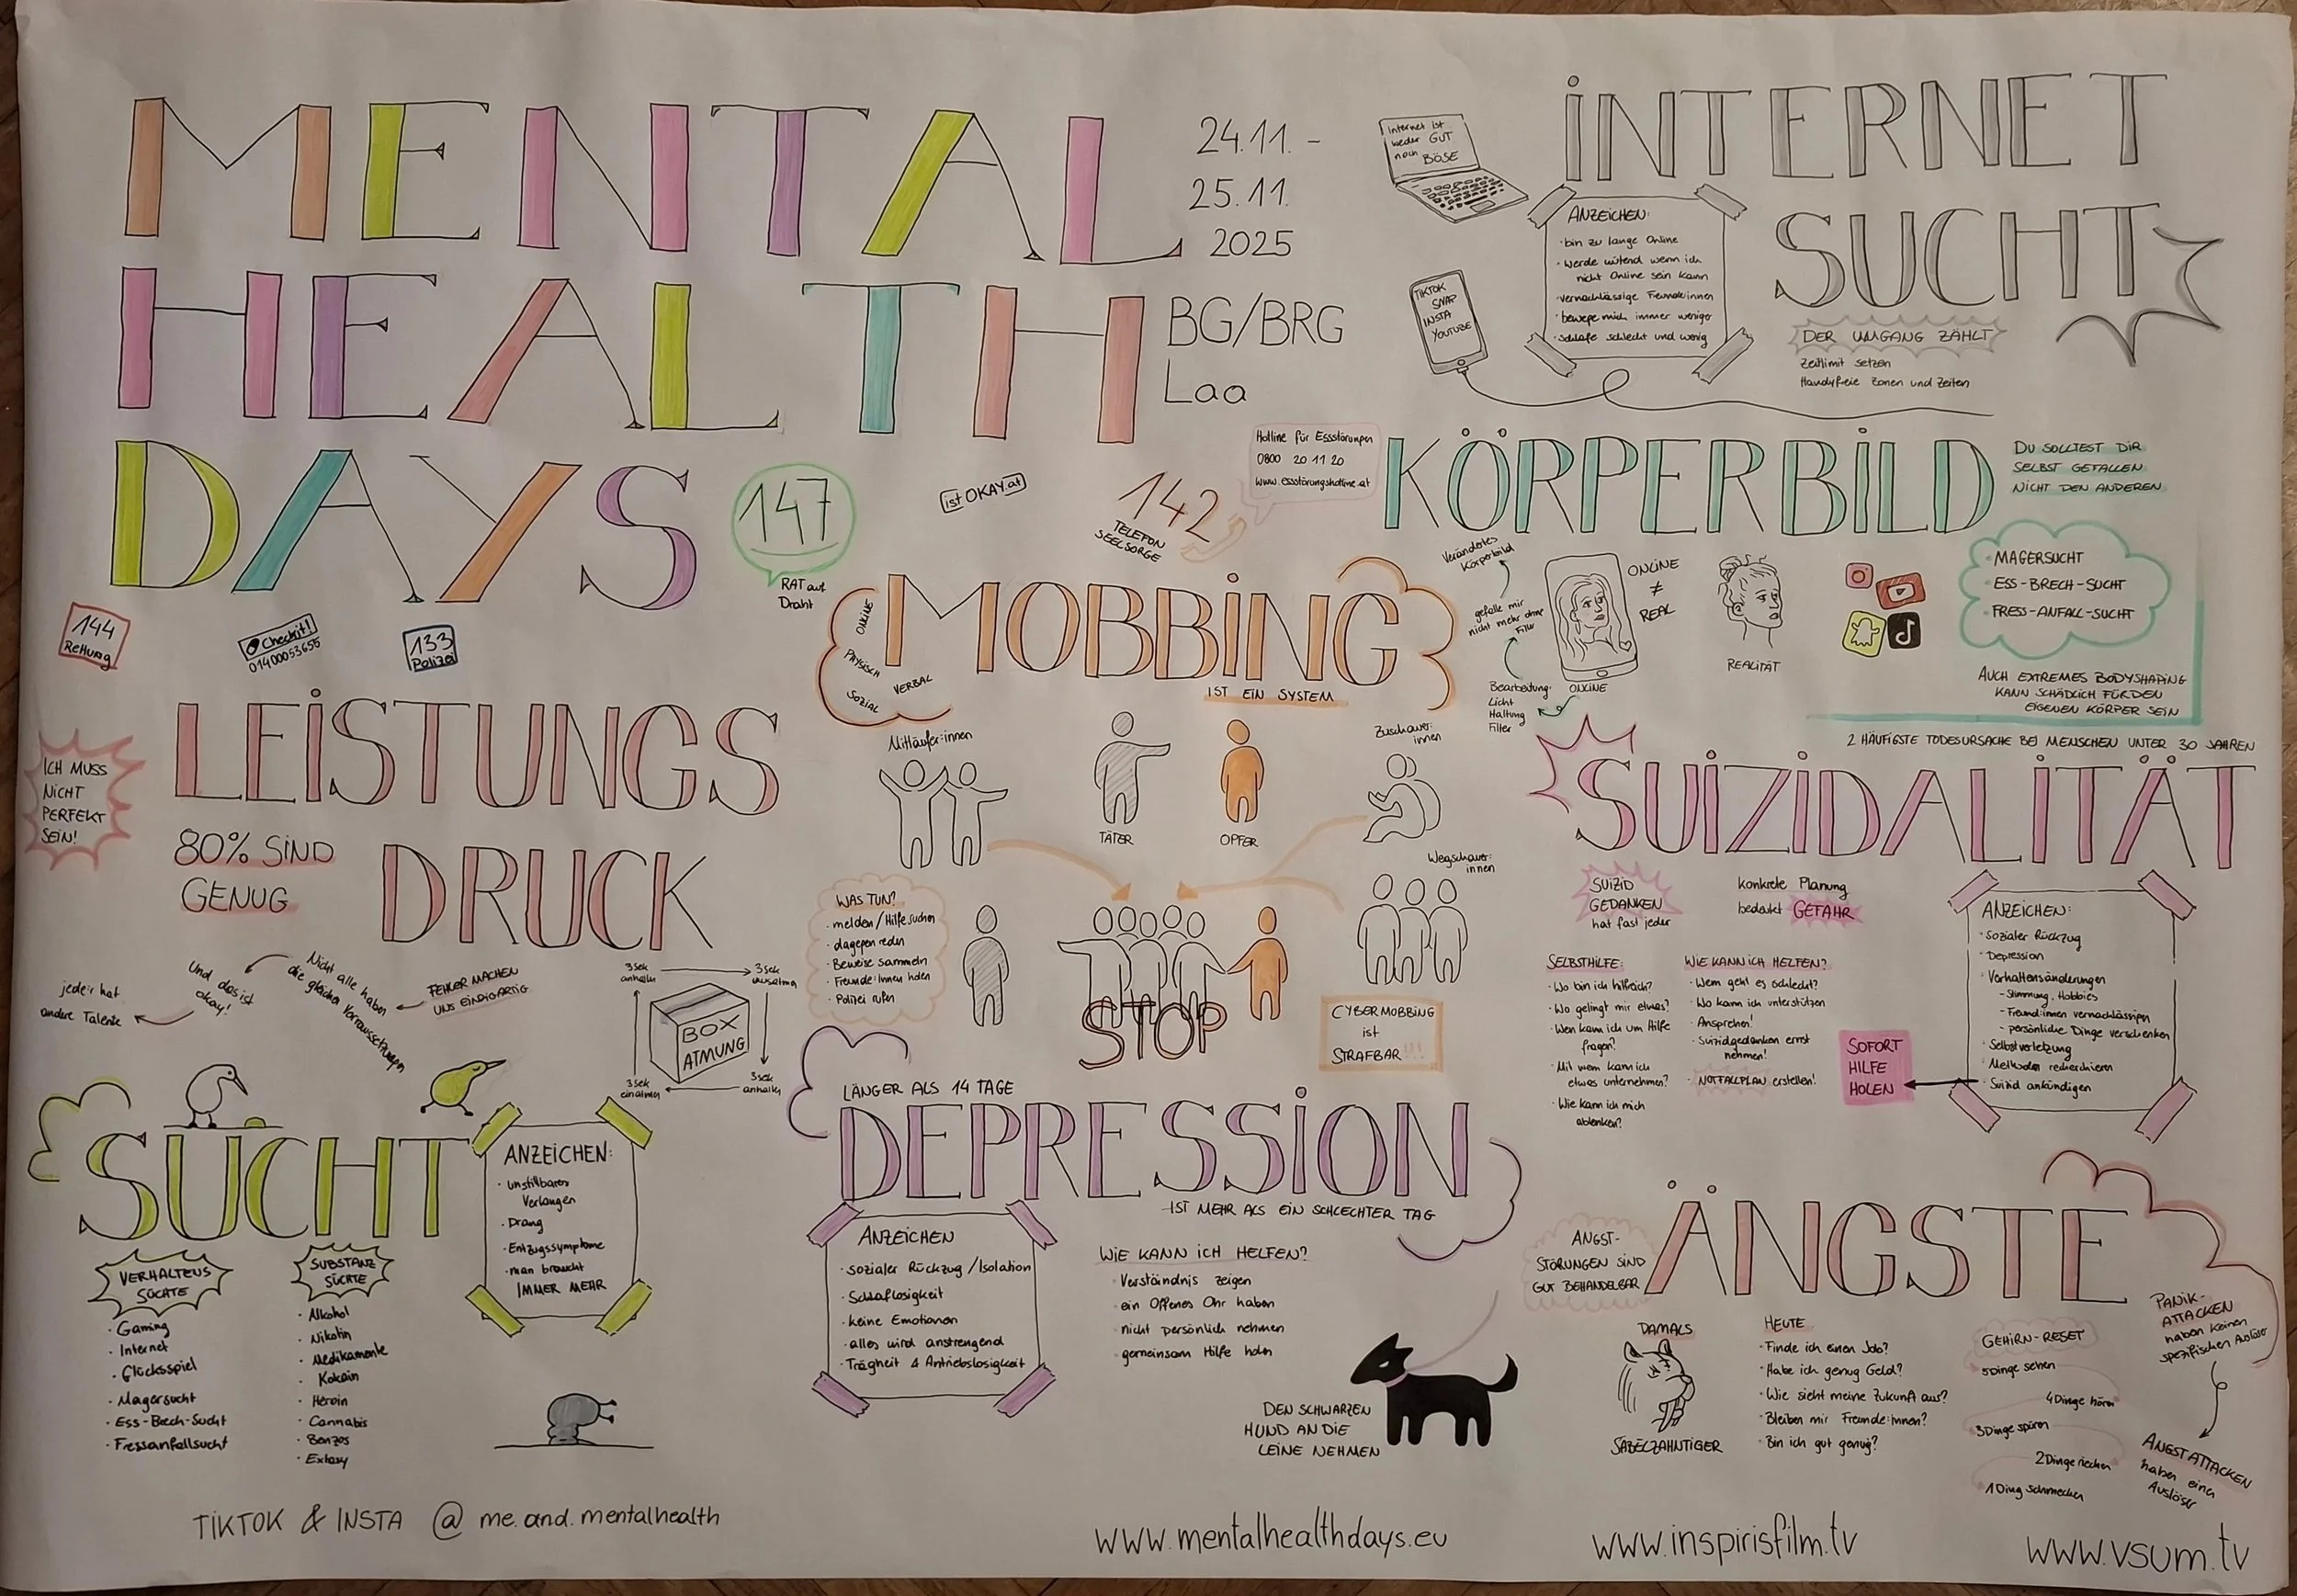 MENTAL
HEALTH
DAYS
24.11. -
25.11.
2025
BG/BRG
Laa
147
RAT auf
Draht
istOKAY.at
142
TELEFON
SEELSORGE
144
Rettung
Checkit!
01400053655
133
Polizei
Internet ist
weder GUT
noch BÖSE
INTERNET
SUCHT
TIKTOK
SNAP
INSTA
YOUTUBE
ANZEICHEN:
· bin zu lange Online
· werde wütend wenn ich
nicht Online sein kann
· vernachlässige Freunde:innen
· bewege mich immer weniger
· schlafe schlecht und wenig
DER UMGANG ZÄHLT
Zeitlimit setzen
Handyfreie Zonen und Zeiten
Hotline für Essstörungen
0800 20 11 20
www.essstörungshotline.at
KÖRPERBILD
DU SOLLTEST DIR
SELBST GEFALLEN
NICHT DEN ANDEREN
Verändertes
Körperbild
gefalle mir
nicht mehr ohne
Filter
Bearbeitung:
Licht
Haltung
Filter
ONLINE
ONLINE
≠
REAL
REALITÄT
· MAGERSUCHT
· ESS-BRECH-SUCHT
· FRESS-ANFALL-SUCHT
AUCH EXTREMES BODYSHAPING
KANN SCHÄDLICH FÜR DEN
EIGENEN KÖRPER SEIN
MOBBING
IST EIN SYSTEM
ONLINE
PHYSISCH
VERBAL
SOZIAL
Mitläufer:innen
TÄTER
OPFER
Zuschauer:
innen
Wegschauer:
innen
WAS TUN?
· melden/Hilfe suchen
· dagegen reden
· Beweise sammeln
· Freunde:innen holen
· Polizei rufen
STOP
CYBERMOBBING
ist
STRAFBAR!!!
LEISTUNGS
DRUCK
ICH MUSS
NICHT
PERFEKT
SEIN!
80% SIND
GENUG
FEHLER MACHEN
UNS EINZIGARTIG
Nicht alle haben
die gleichen Vorraussetzungen
Und das ist
okay!
jede:r hat
andere Talente
3sek
anhalten
3sek
ausatmen
BOX
ATMUNG
3sek
einatmen
3sek
anhalten
2 HÄUFIGSTE TODESURSACHE BEI MENSCHEN UNTER 30 JAHREN
SUIZIDALITÄT
SUIZID
GEDANKEN
hat fast jeder
konkrete Planung
bedeutet GEFAHR
SELBSTHILFE:
· Wo bin ich hilfreich?
· Wo gelingt mir etwas?
· Wen kann ich um Hilfe
fragen?
· Mit wem kann ich
etwas unternehmen?
· Wie kann ich mich
ablenken?
WIE KANN ICH HELFEN?
· Wem geht es schlecht?
· Wo kann ich unterstützen
· Ansprechen!
· Suizidgedanken ernst
nehmen!
· NOTFALLPLAN erstellen!
ANZEICHEN:
· Sozialer Rückzug
· Depression
· Verhaltensänderungen
- Stimmung, Hobbies
- Freund:innen vernachlässigen
- persönliche Dinge verschenken
· Selbstverletzung
· Methoden recherchieren
· Suizid ankündigen
SOFORT
HILFE
HOLEN
SUCHT
VERHALTENS
SÜCHTE
· Gaming
· Internet
· Glücksspiel
· Magersucht
· Ess-Brech-Sucht
· Fressanfallsucht
SUBSTANZ
SÜCHTE
· Alkohol
· Nikotin
· Medikamente
· Kokain
· Heroin
· Cannabis
· Benzos
· Extasy
ANZEICHEN:
· unstillbares
Verlangen
· Drang
· Entzugssymptome
· man braucht
IMMER MEHR
LÄNGER ALS 14 TAGE
DEPRESSION
IST MEHR ALS EIN SCHLECHTER TAG
ANZEICHEN
· sozialer Rückzug/Isolation
· Schlaflosigkeit
· keine Emotionen
· alles wird anstrengend
· Trägheit & Antriebslosigkeit
WIE KANN ICH HELFEN?
· Verständnis zeigen
· ein Offenes Ohr haben
· nicht persönlich nehmen
· gemeinsam Hilfe holen
DEN SCHWARZEN
HUND AN DIE
LEINE NEHMEN
ÄNGSTE
ANGST-
STÖRUNGEN SIND
GUT BEHANDELBAR
DAMALS
SÄBELZAHNTIGER
HEUTE
· Finde ich einen Job?
· Habe ich genug Geld?
· Wie sieht meine Zukunft aus?
· Bleiben mir Freunde:innen?
· Bin ich gut genug?
GEHIRN-RESET
5 Dinge sehen
4 Dinge hören
3 Dinge spüren
2 Dinge riechen
1 Ding schmecken
PANIK-
ATTACKEN
haben keinen
spezifischen Auslöser
ANGSTATTACKEN
haben einen
Auslöser
TIKTOK & INSTA @ me.and.mentalhealth
www.mentalhealthdays.eu
www.inspirisfilm.tv
www.vsum.tv